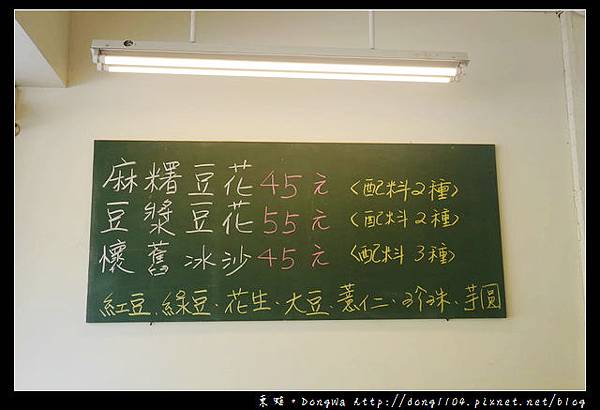 麻糬豆花45元〈配料2種〉
豆漿豆花55元〈配料2種〉
懷舊冰沙45元〈配料3種〉
紅豆.綠豆.花生.大豆.薏仁.珍珠.芋圓
DongWa http://dong1104.pixnet.net/blog